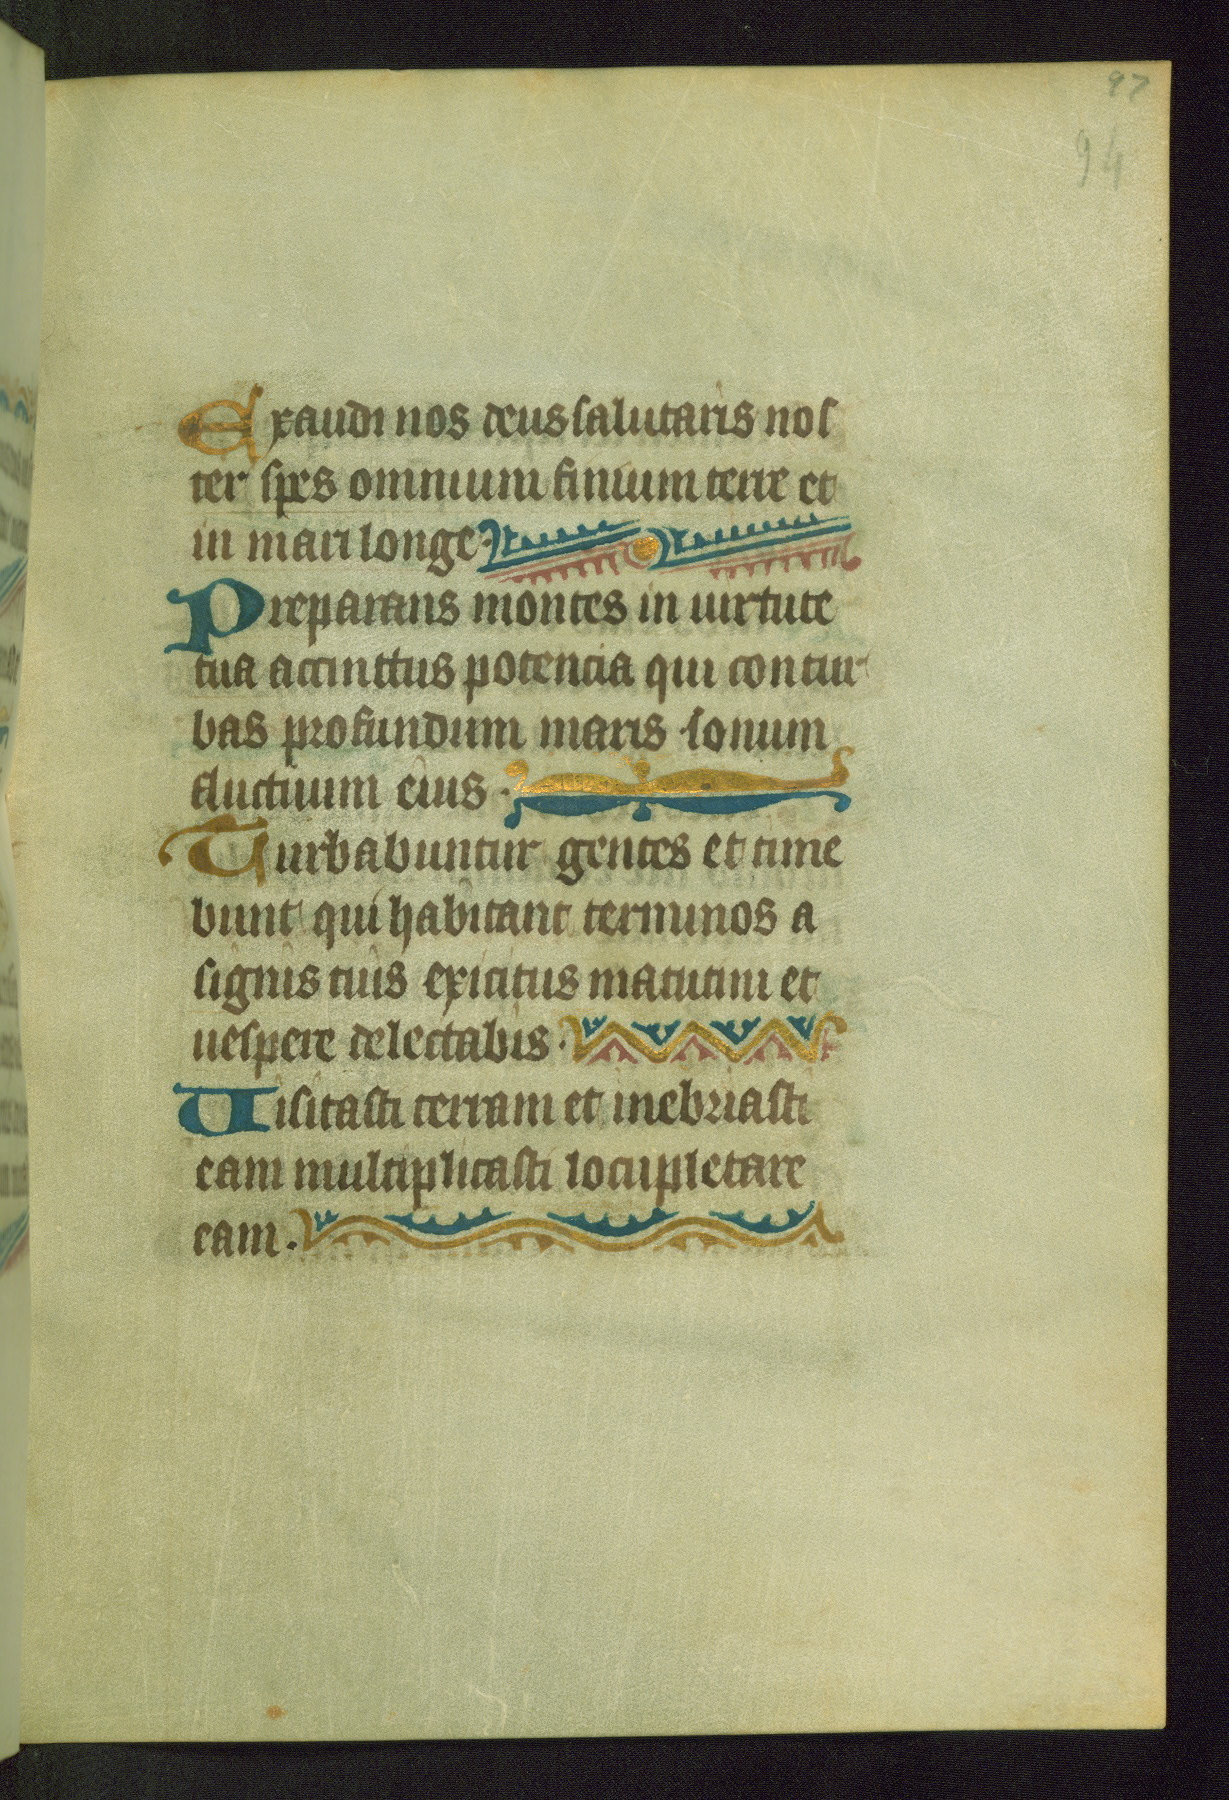 97
94
Exaudi nos deus salutaris nos
ter spes omnium finium terre et
in mari longe·
Preparans montes in uirtute
tua accinttus potencia qui contur
bas profundum maris sonum
fluctuum eius·
Turbabuntur gentes et time
bunt qui habitant terminos a
signis tuis exicitus matutini et
uespere delectabis·
Uisitasti terram et inebriasti
eam multiplicasti locupletare
eam·